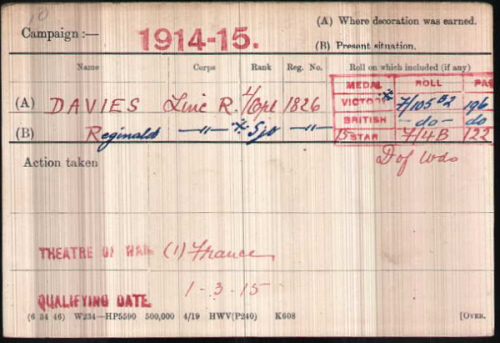 (A) Where decoration was earned.
Campaign :— 1914-15.
(B) Present situation.
Name Corps Rank Reg. No. Roll on which included (if any)
MEDAL ROLL PAGE
(A) DAVIES Linc R. L/Cpl 1826 VICTORY * F/105 B2 196
BRITISH - do - do
(B) Reginald —"— * Sjt —"— 15 STAR F/4B 122
Action taken D of Wds
THEATRE OF WAR (1) France
QUALIFYING DATE 1-3-15
(6 34 46) W234—HP5590 500,000 4/19 HWV(P240) K608 [OVER.